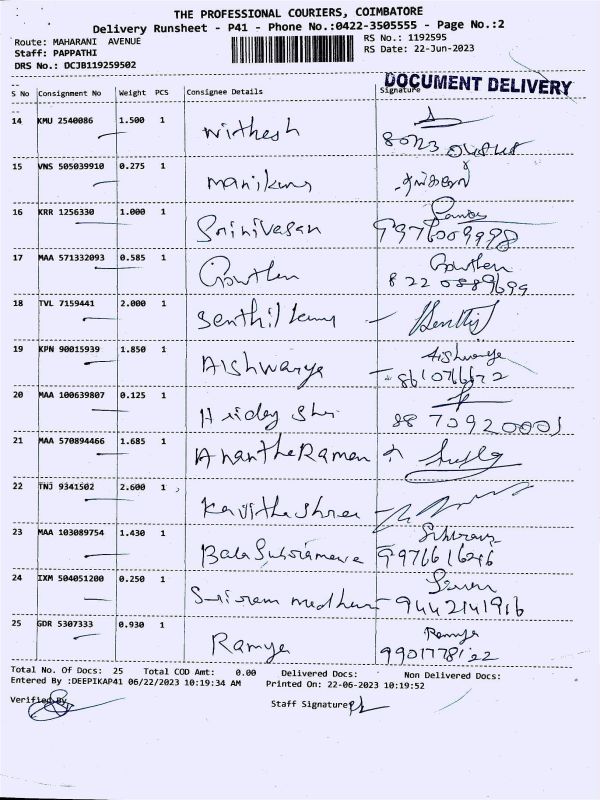 THE PROFESSIONAL COURIERS, COIMBATORE
Delivery Runsheet - P41 - Phone No.:0422-3505555 - Page No.:2
Route: MAHARANI AVENUE
RS No.: 1192595
Staff: PAPPATHI
RS Date: 22-Jun-2023
DRS No.: DCJB119259502
DOCUMENT DELIVERY
S No Consignment No Weight PCS Consignee Details Signature
14 KMU 2540086 1.500 1
15 VNS 505039910 0.275 1
16 KRR 1256330 1.000 1 Srinivasan
9976009998
17 MAA 571332093 0.585 1 Gowthen
Gowthen
8220889699
18 TVL 7159441 2.000 1 Senthil kumy Senthil
19 KPN 90015939 1.850 1 Aishwarya
Aishwarya
20 MAA 100639807 0.125 1
8870920001
21 MAA 570894466 1.685 1 AnantheRaman
22 TNJ 9341502 2.600 1 Kavithashree
23 MAA 103089754 1.430 1
9976616246
24 IXM 504051200 0.250 1 Sriram
9442141916
25 GDR 5307333 0.930 1 Ramya
Ramya
Total No. Of Docs: 25 Total COD Amt: 0.00 Delivered Docs: Non Delivered Docs:
Entered By :DEEPIKAP41 06/22/2023 10:19:34 AM Printed On: 22-06-2023 10:19:52
Verified By
Staff Signature